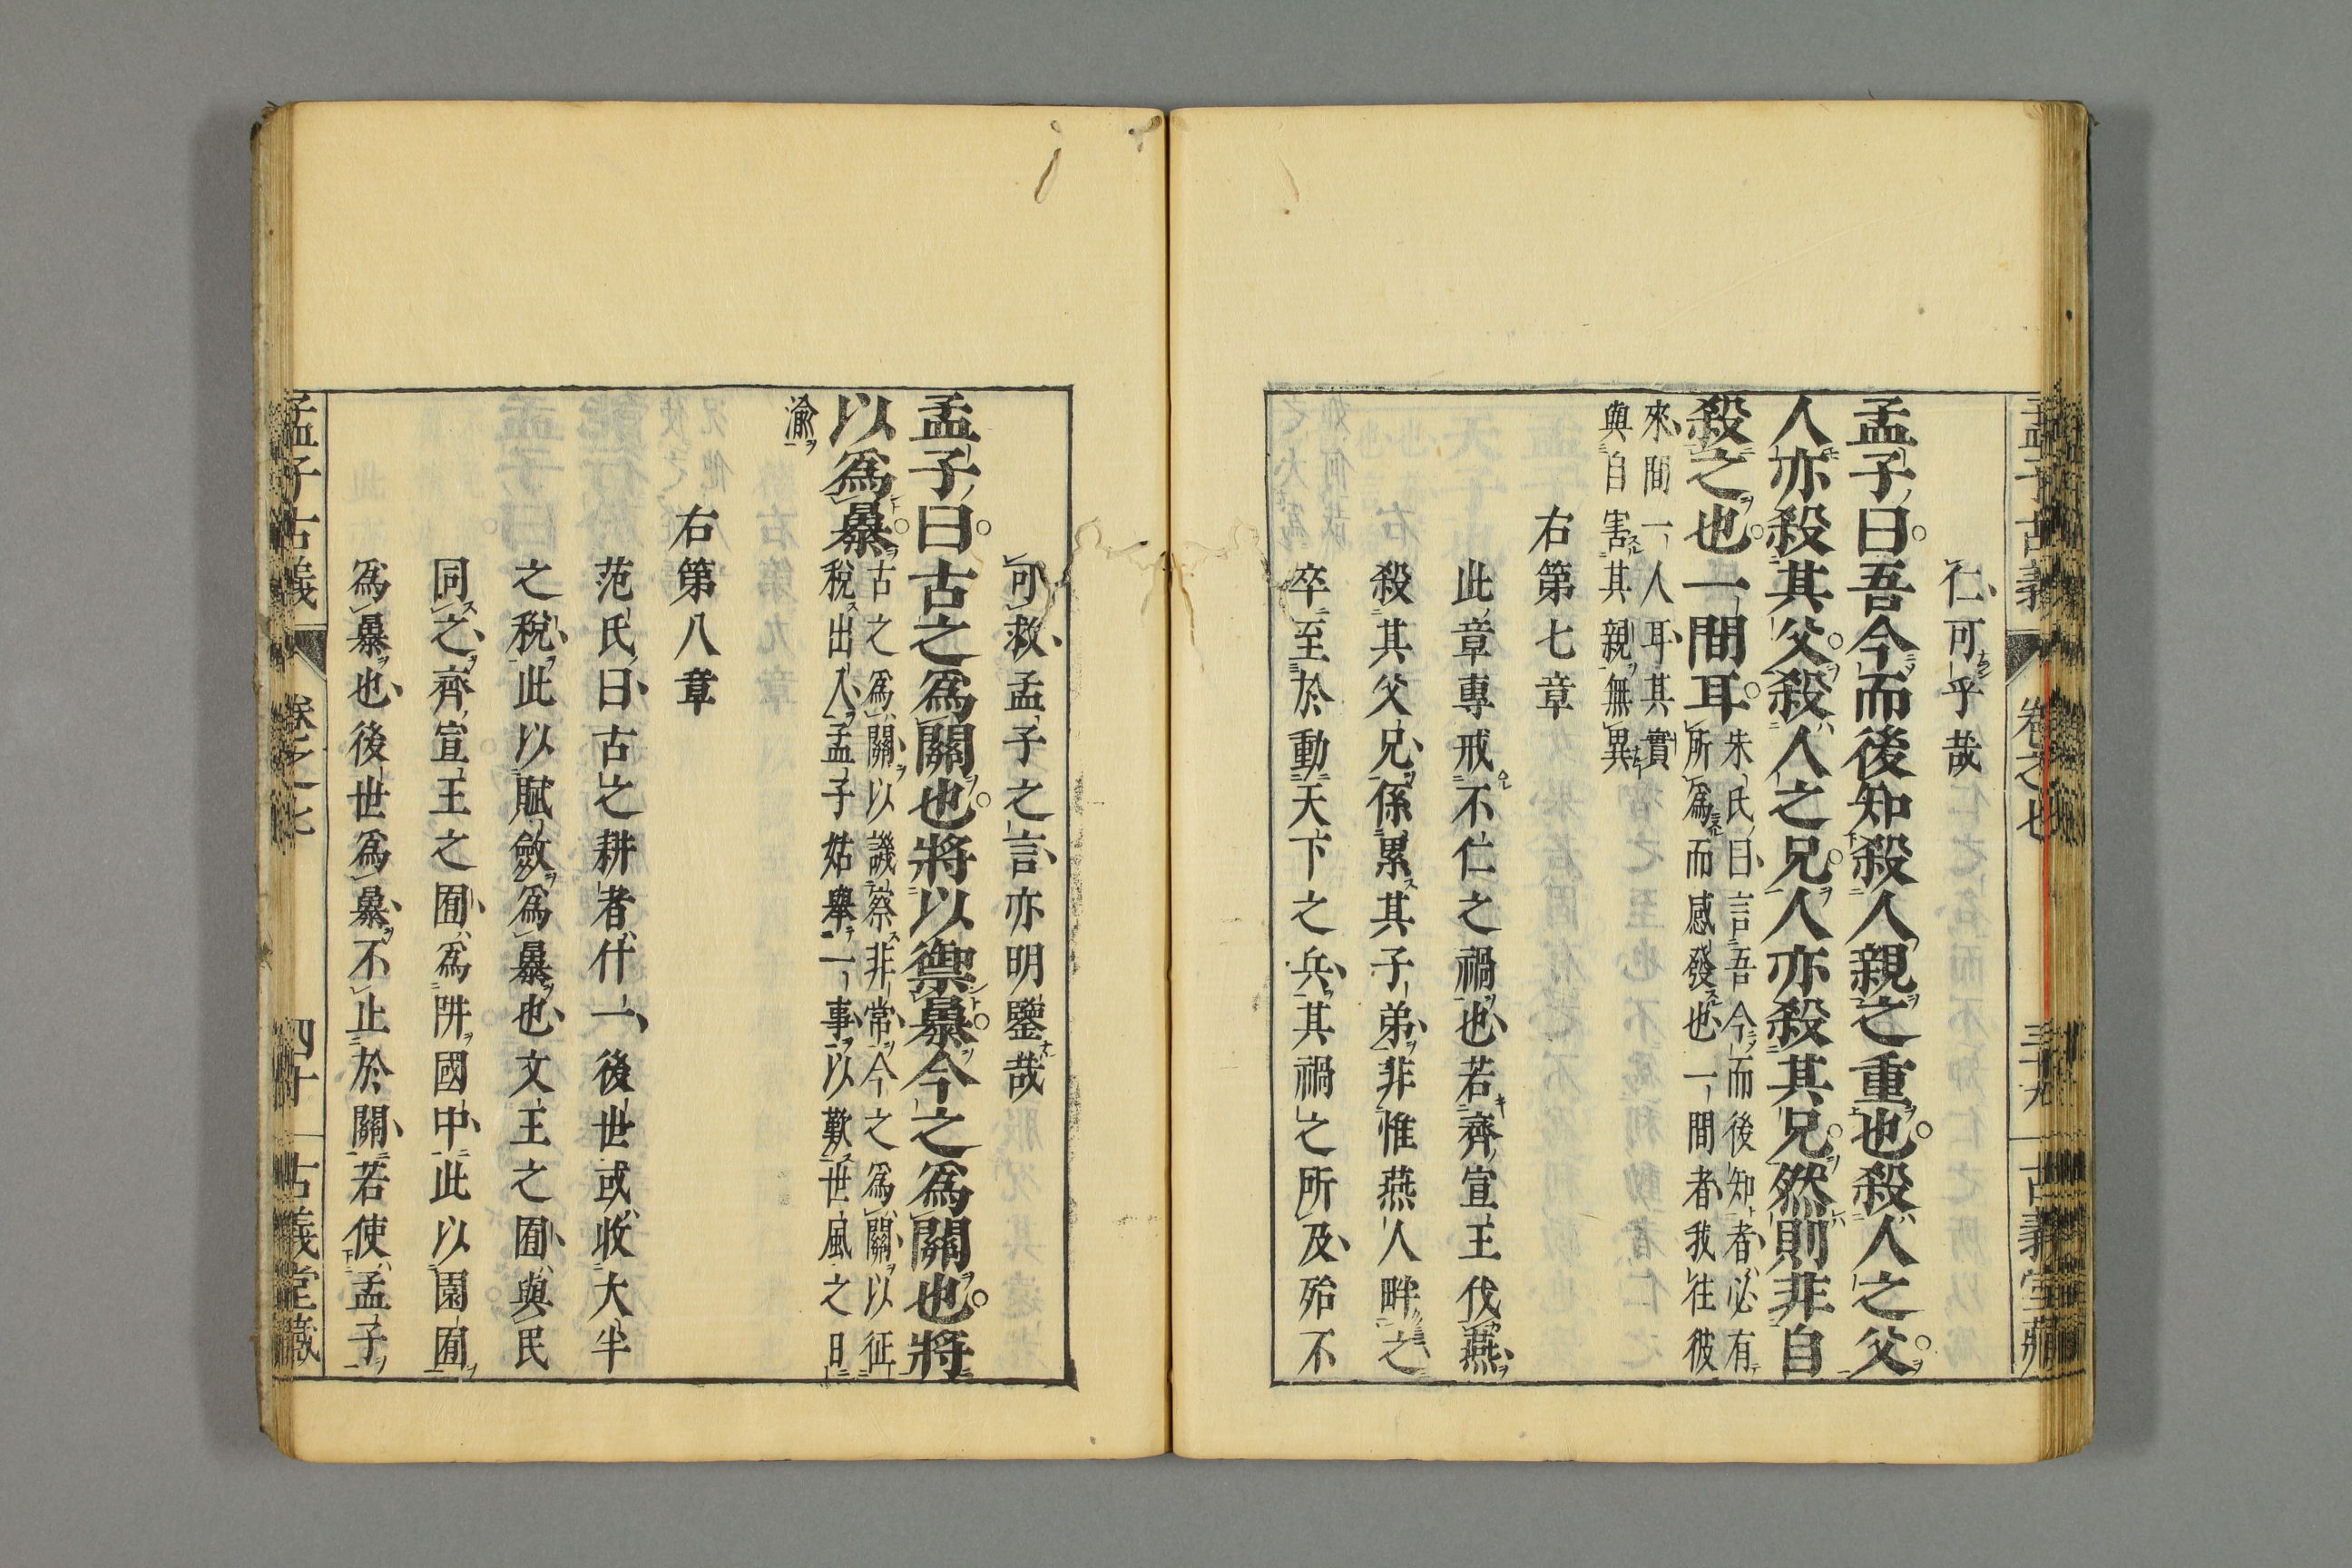 孟子古義 卷之七 三十九 古義堂藏
仁可乎哉
孟子曰吾今而後知殺人親之重也殺人之父
人亦殺其父殺人之兄人亦殺其兄然則非自
殺之也一間耳
朱氏曰言吾今而後知者必有
所爲而感發也一間者我往彼
來間一人耳其實
與自害其親無異
右第七章
此章專戒不仁之禍也若齊宣王伐燕
殺其父兄係累其子弟非惟燕人畔之
卒至於動天下之兵其禍之所及殆不
可救孟子之言亦明鑒哉
孟子曰古之爲關也將以禦暴今之爲關也將
以爲暴
古之爲關以譏察非常今之爲關以征
稅出入孟子姑舉一事以歎世風之日
渝
右第八章
范氏曰古之耕者什一後世或收大半
之稅此以賦斂爲暴也文王之囿與民
同之齊宣王之囿爲阱國中此以園囿
爲暴也後世爲暴不止於關若使孟子
孟子古義 卷之七 四十 古義堂藏